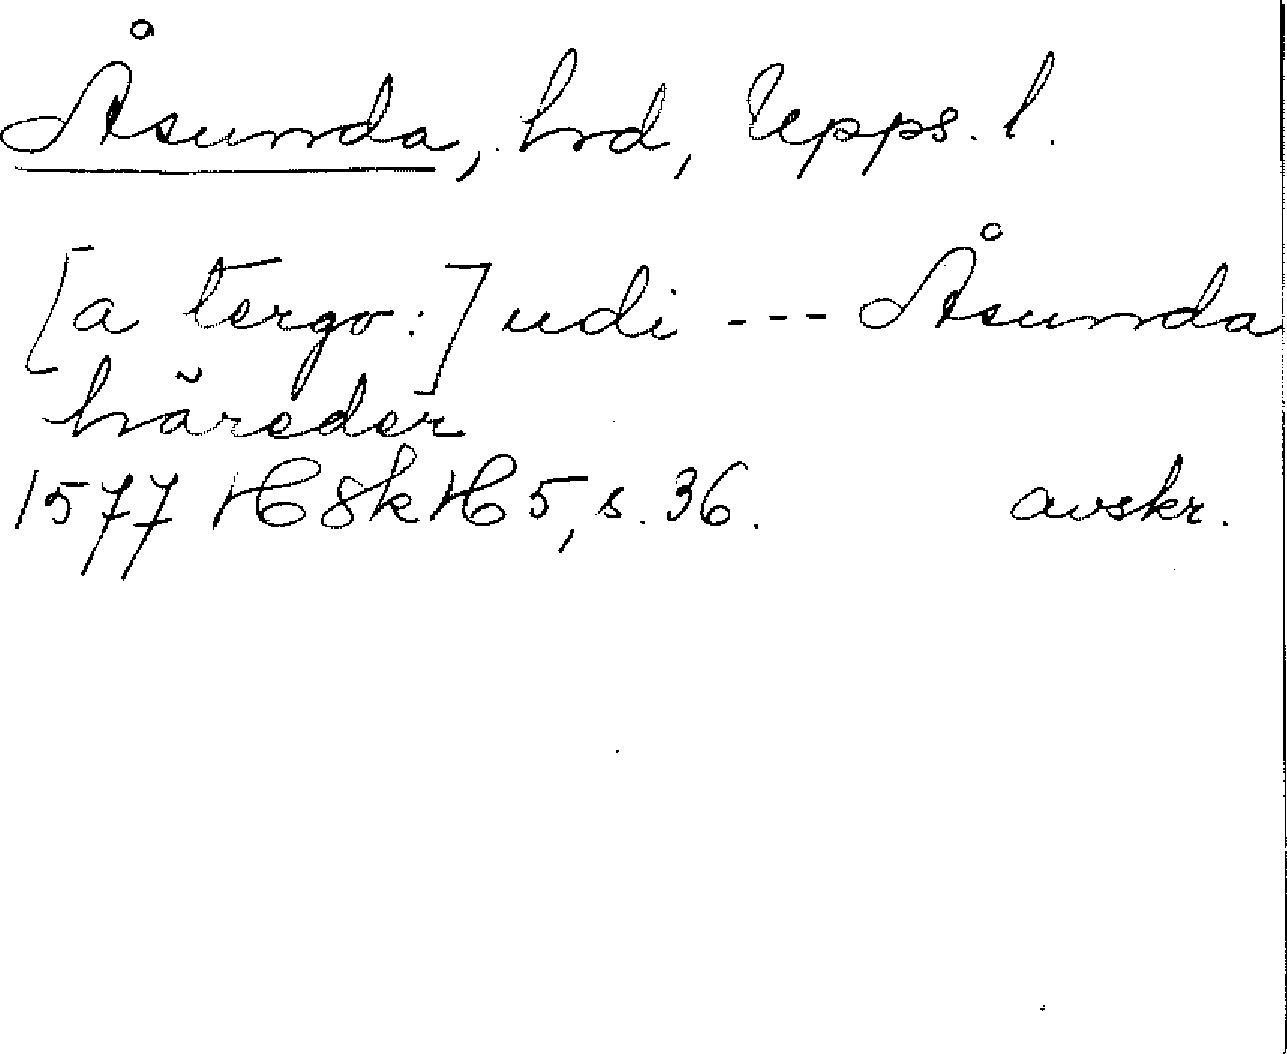 Åsunda, hrd, Upps. l.
[a tergo:] udi --- Åsunda
häreder
1577 HSkH 5, s. 36. avskr.